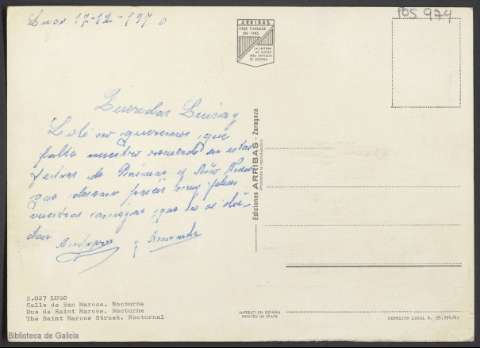 Lugo 17-12-1970
POS 974
ARRIBAS
Queridas Luisa y
Lolé no queremos que
falte nuestro recuerdo en estas
fechas de Pascuas y Año Nuevo
que deseamos paséis muy felices
vuestras amigas que no os
y Armanda
Ediciones ARRIBAS - Zaragoza
2.027 LUGO
Calle de San Marcos. Nocturna
Rue de Saint Marcos. Nocturne
The Saint Marcos Street. Nocturnal
IMPRESO EN ESPAÑA
PRINTED IN SPAIN
DEPOSITO LEGAL B.
Biblioteca de Galicia